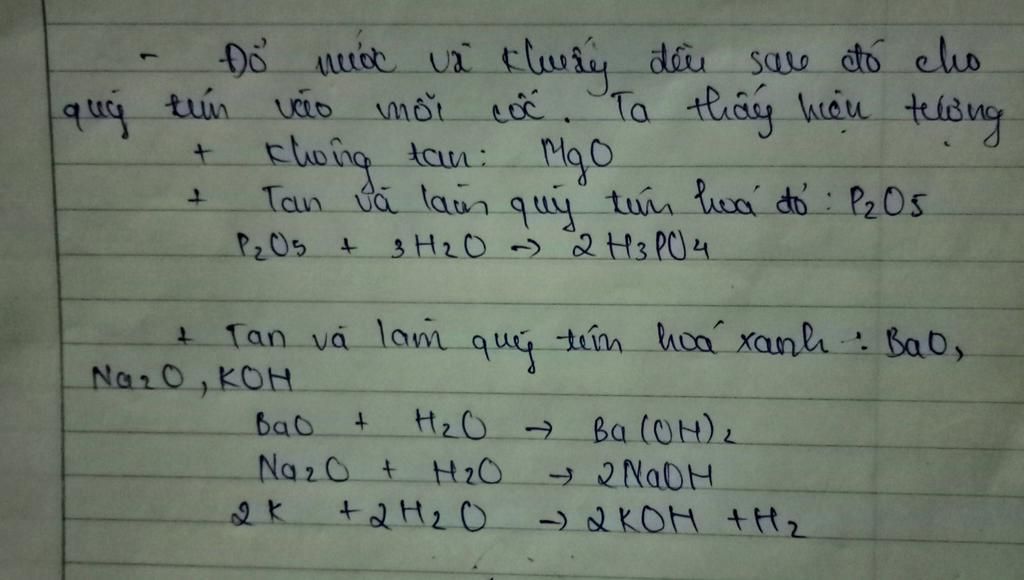 - Đổ nước và khuấy đều sau đó cho
quỳ tím vào mỗi cốc. Ta thấy hiện tượng
+ Không tan: MgO
+ Tan và làm quỳ tím hoá đỏ: P2O5
P2O5 + 3H2O → 2H3PO4
+ Tan và làm quỳ tím hoá xanh: BaO,
Na2O, KOH
BaO + H2O → Ba(OH)2
Na2O + H2O → 2NaOH
2K + 2H2O → 2KOH + H2